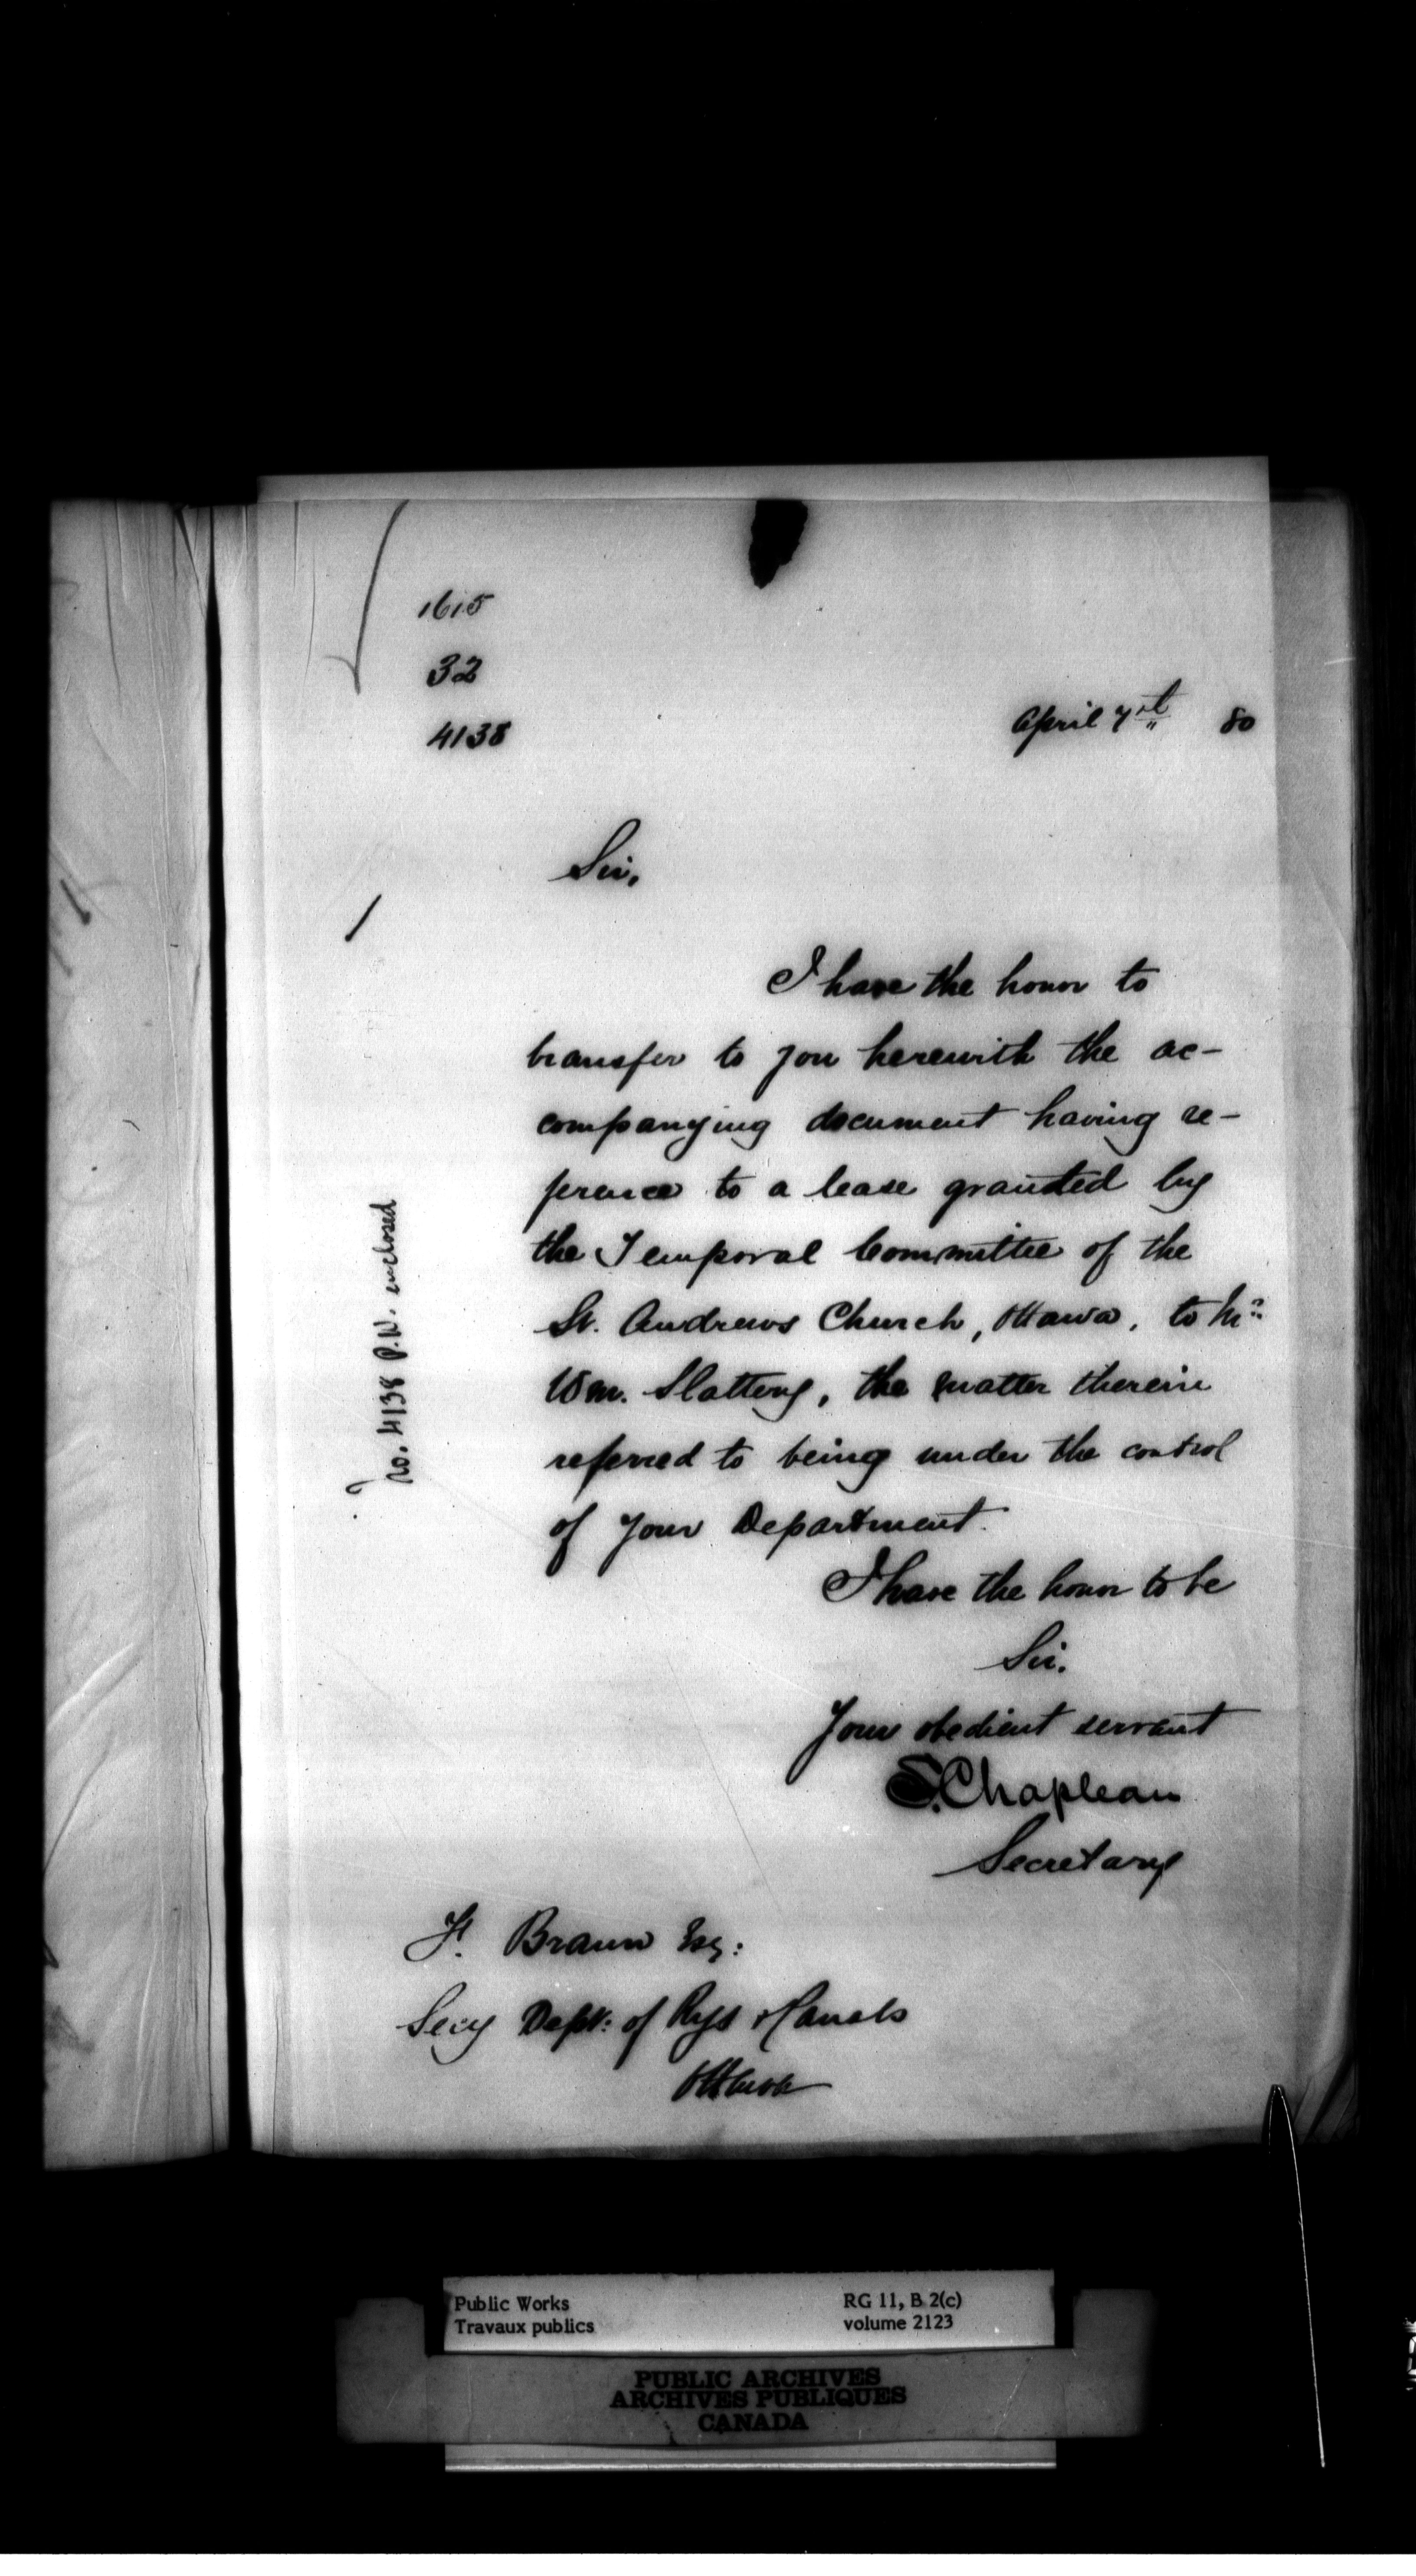 1615
32
4138
April 7th 80
Sir,
I have the honor to
transfer to you herewith the ac-
companying document having re-
ference to a lease granted by
the Temporal Committee of the
St. Andrews Church, Ottawa, to Mr.
Wm. Slattery, the matter therein
referred to being under the control
of your Department.
I have the honor to be
Sir.
Your obedient servant
S. Chapleau
Secretary
No. 4138 P.W. enclosed
F. Braun Esq:
Secy Dept: of Rys & Canals
Ottawa
Public Works
Travaux publics
RG 11, B 2(c)
volume 2123
PUBLIC ARCHIVES
ARCHIVES PUBLIQUES
CANADA